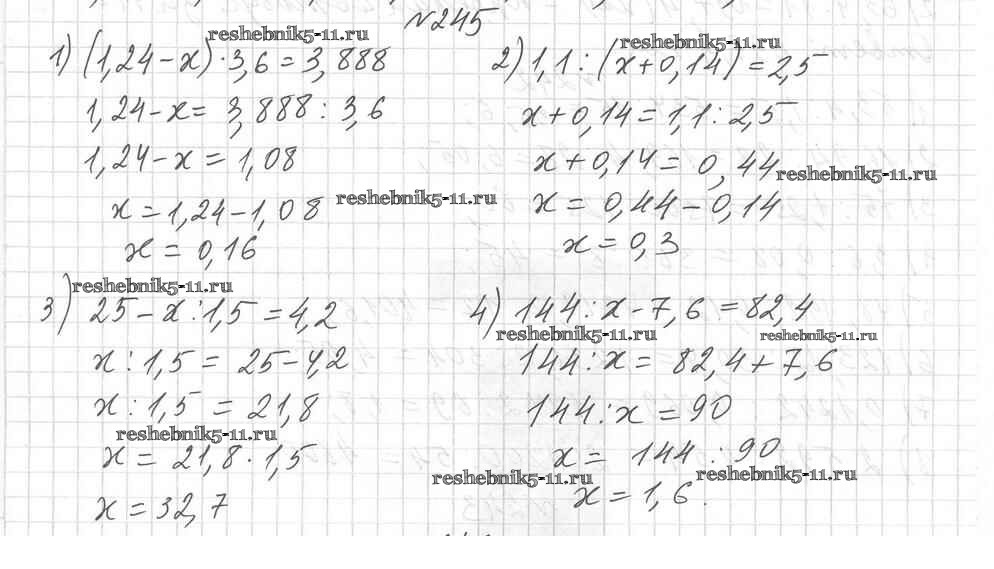 №245
reshebnik5-11.ru
1) (1,24-x)·3,6=3,888
1,24-x= 3,888:3,6
1,24-x=1,08
x=1,24-1,08
reshebnik5-11.ru
x=0,16
reshebnik5-11.ru
2) 1,1:(x+0,14)=2,5
x+0,14=1,1:2,5
x+0,14=0,44
reshebnik5-11.ru
x=0,44-0,14
x=0,3
reshebnik5-11.ru
3) 25-x:1,5=4,2
x:1,5=25-4,2
x:1,5=21,8
reshebnik5-11.ru
x=21,8·1,5
x=32,7
4) 144:x-7,6=82,4
reshebnik5-11.ru
reshebnik5-11.ru
144:x=82,4+7,6
144:x=90
x=144:90
reshebnik5-11.ru
reshebnik5-11.ru
x=1,6.